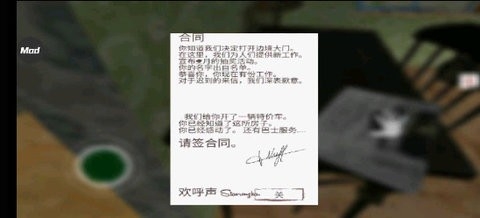 Mod
合同
你知道我们决定打开边境大门。
在这里，我们为人们提供新工作。
你的名字出自名单。
恭喜你，你现在有份工作。
对于迟到的来信，我们深表歉意。
我们给你开了一辆特价车。
你已经知道了这所房子。
你已经感动了。 还有巴士服务...
请签合同。
欢呼声
关